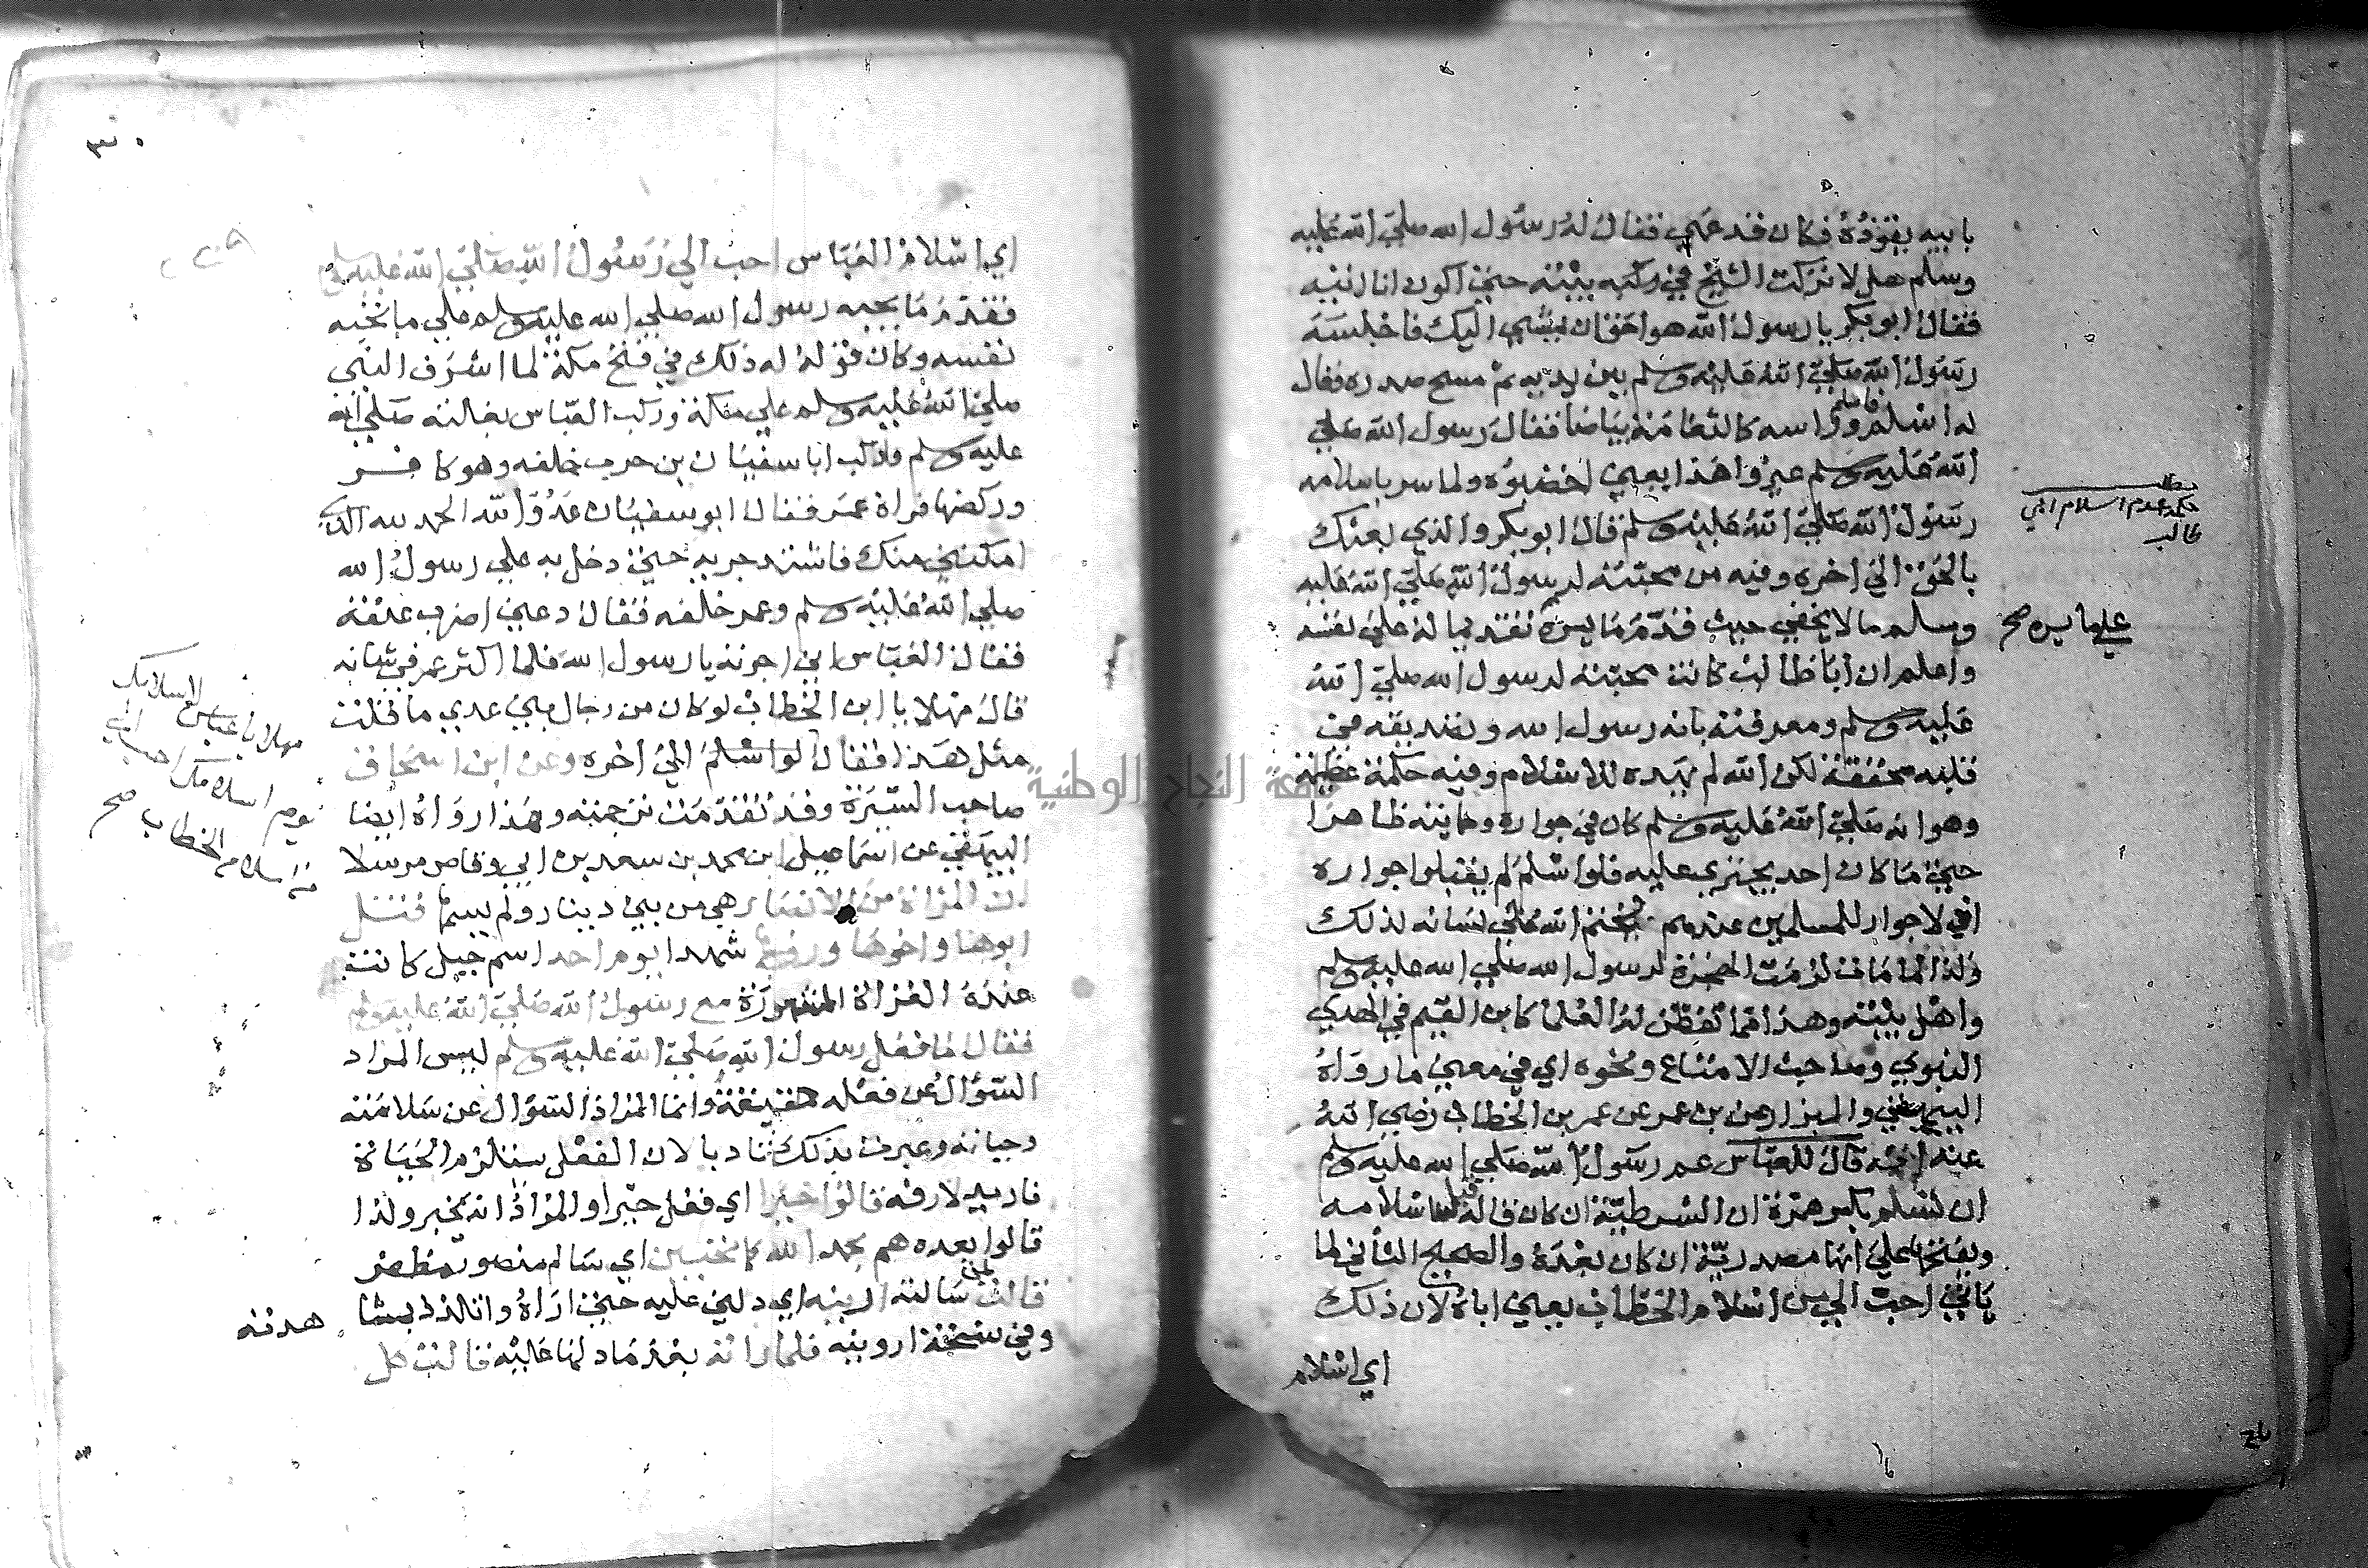 بابيه يقوده فكان قد عمي فقال له رسول الله صلي الله عليه
وسلم هل لا تركت الشيخ في بيته حتي اكون انا اتيه
فقال ابو بكر يا رسول الله هو احق ان يمشي اليك فاجلسه
رسول الله صلي الله عليه وسلم بين يديه ثم مسح صدره فقال
له اسلم فاسلم وراسه كالثغامة بياضا فقال رسول الله صلي
الله عليه وسلم غيروا هذا يعني اخضبوه ولما سر باسلامه
رسول الله صلي الله عليه وسلم قال ابو بكر والذي بعثك
بالحق الي اخره وفيه من محبته لرسول الله صلي الله عليه
وسلم ما لا يخفي حيث قدم ما يسره نفند بماله علي نفسه
واعلم ان ابا طالب كانت محبته لرسول الله صلي الله
عليه وسلم ومعرفته بانه رسول الله وتصديقه في
قلبه محققة لكن الله لم يهده للاسلام وفيه حكمة عظيمة
وهو انه صلي الله عليه وسلم كان في جواره وحمايته ظاهرا
حتي ما كان احد يجتري عليه فلو اسلم لم يقبلوا جواره
اذ لا جوار للمسلمين عندهم فختم الله علي لسانه لذلك
ولذا لما مات لزمت الهجرة لرسول الله صلي الله عليه وسلم
واهل بيته وهذا مما تفطن له العلما كابن القيم في الهدي
النبوي وصاحب الامتاع ونحوه اي في معني ما رواه
البيهقي والبزار عن بن عمر عن عمر بن الخطاب رضي الله
عنه انه قال للعباس عم رسول الله صلي الله عليه وسلم
ان تسلم بكسر همزة ان الشرطية ان كان قاله قبل اسلامه
وبفتحها علي انها مصدرية ان كان بعده والصحيح الثاني لما
ياتي احب الي من اسلام الخطاب يعني اباه لان ذلك
اي اسلام
حكمة عدم اسلام ابي
طالب
علي ما يسره صح
٣٠
اي اسلام العباس احب الي رسول الله صلي الله عليه وسلم
فقدم ما يحبه رسول الله صلي الله عليه وسلم علي ما تحبه
نفسه وكان قوله له ذلك في فتح مكة لما اشرف النبي
صلي الله عليه وسلم علي مكة وركب العباس بغلته صلي الله
عليه وسلم واركب ابا سفيان بن حرب خلفه وهو كافر
وركضها فراه عمر فقال ابو سفيان عدو الله الحمد لله الذي
امكنني منك فاشتد جريه حتي دخل به علي رسول الله
صلي الله عليه وسلم وعمر خلفه فقال دعني اضرب عنقه
فقال العباس اني اجرته يا رسول الله فلما اكثر عمر في شانه
قال مهلا يا ابن الخطاب لو كان من رجال بني عدي ما قلت
مثل هذا فقال لو اسلم الي اخره وعن ابن اسحاق
صاحب السيرة وقد تقدمت ترجمته وهذا رواه ايضا
البيهقي عن اسماعيل ابن محمد بن سعد بن ابي وقاص مرسلا
ان المراة من الانصار هي من بني دينار ولم يسمها قتل
ابوها واخوها وزوجها شهدا يوم احد اسم جبل كانت
عنده الغزاة المشهورة مع رسول الله صلي الله عليه وسلم
فقال ما فعل رسول الله صلي الله عليه وسلم ليس المراد
السؤال عن فعله حقيقة وانما المراد السؤال عن سلامته
وحياته وعبرت بذلك تادبا لان الفعل يستلزم الحياة
فاريد لازمه قالوا خيرا اي فعل خيرا والمراد انه بخير ولذا
قالوا بعده هم بحمد الله كما تحبين اي سالم منصور مظفر
قالت ارنيه اي دلني عليه حتي اراه وانلذذ بمشا هدته
وفي نسخة ارونيه فلما راته بعد ما دلها عليه قالت كل
مهلا يا عباس لاسلامك
يوم اسلامك احب الي
من اسلام الخطاب صح